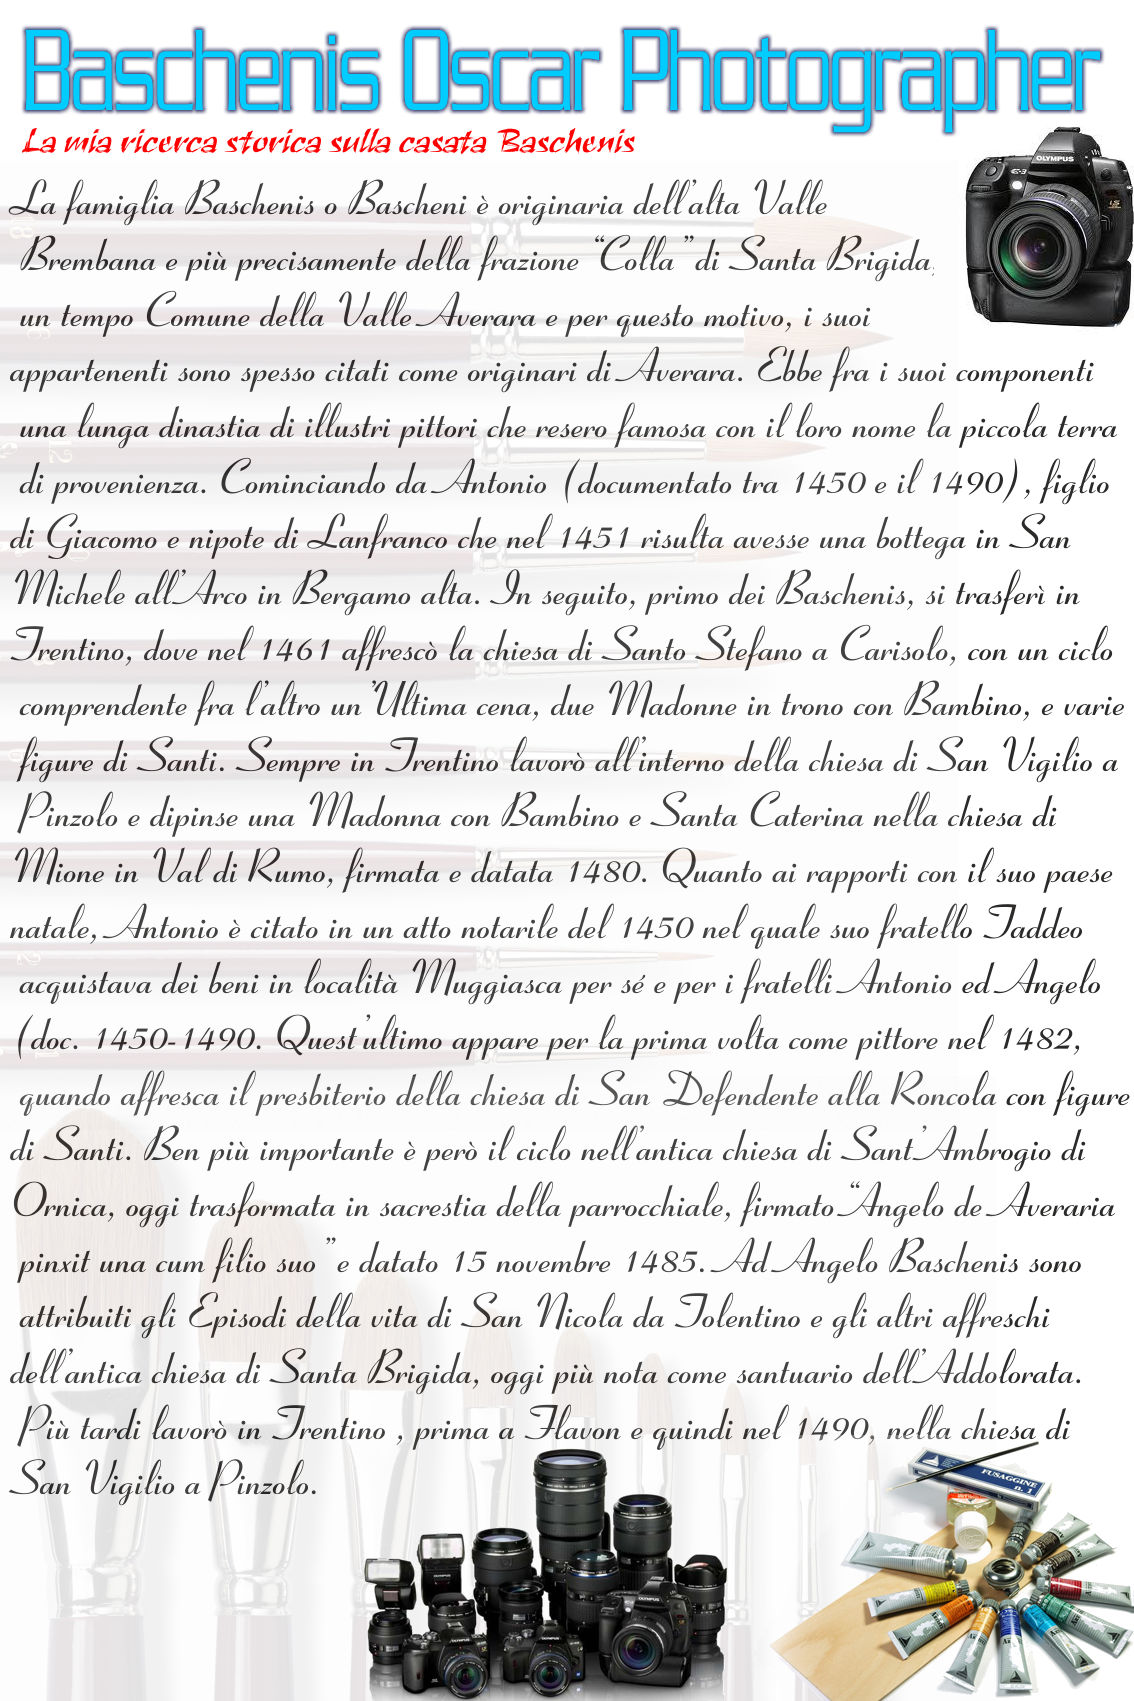 Baschenis Oscar Photographer
La mia ricerca storica sulla casata Baschenis
La famiglia Baschenis o Bascheni è originaria dell'alta Valle
Brembana e più precisamente della frazione “Colla” di Santa Brigida,
un tempo Comune della Valle Averara e per questo motivo, i suoi
appartenenti sono spesso citati come originari di Averara. Ebbe fra i suoi componenti
una lunga dinastia di illustri pittori che resero famosa con il loro nome la piccola terra
di provenienza. Cominciando da Antonio (documentato tra 1450 e il 1490), figlio
di Giacomo e nipote di Lanfranco che nel 1451 risulta avesse una bottega in San
Michele all'Arco in Bergamo alta. In seguito, primo dei Baschenis, si trasferì in
Trentino, dove nel 1461 affrescò la chiesa di Santo Stefano a Carisolo, con un ciclo
comprendente fra l'altro un'Ultima cena, due Madonne in trono con Bambino, e varie
figure di Santi. Sempre in Trentino lavorò all'interno della chiesa di San Vigilio a
Pinzolo e dipinse una Madonna con Bambino e Santa Caterina nella chiesa di
Mione in Val di Rumo, firmata e datata 1480. Quanto ai rapporti con il suo paese
natale, Antonio è citato in un atto notarile del 1450 nel quale suo fratello Taddeo
acquistava dei beni in località Muggiasca per sé e per i fratelli Antonio ed Angelo
(doc. 1450-1490. Quest'ultimo appare per la prima volta come pittore nel 1482,
quando affresca il presbiterio della chiesa di San Defendente alla Roncola con figure
di Santi. Ben più importante è però il ciclo nell'antica chiesa di Sant'Ambrogio di
Ornica, oggi trasformata in sacrestia della parrocchiale, firmato “Angelo de Averaria
pinxit una cum filio suo ” e datato 15 novembre 1485. Ad Angelo Baschenis sono
attribuiti gli Episodi della vita di San Nicola da Tolentino e gli altri affreschi
dell'antica chiesa di Santa Brigida, oggi più nota come santuario dell'Addolorata.
Più tardi lavorò in Trentino , prima a Flavon e quindi nel 1490, nella chiesa di
San Vigilio a Pinzolo.
OLYMPUS
E-3
FUSAGGINE
n. 1
OLYMPUS
OLYMPUS
OLYMPUS